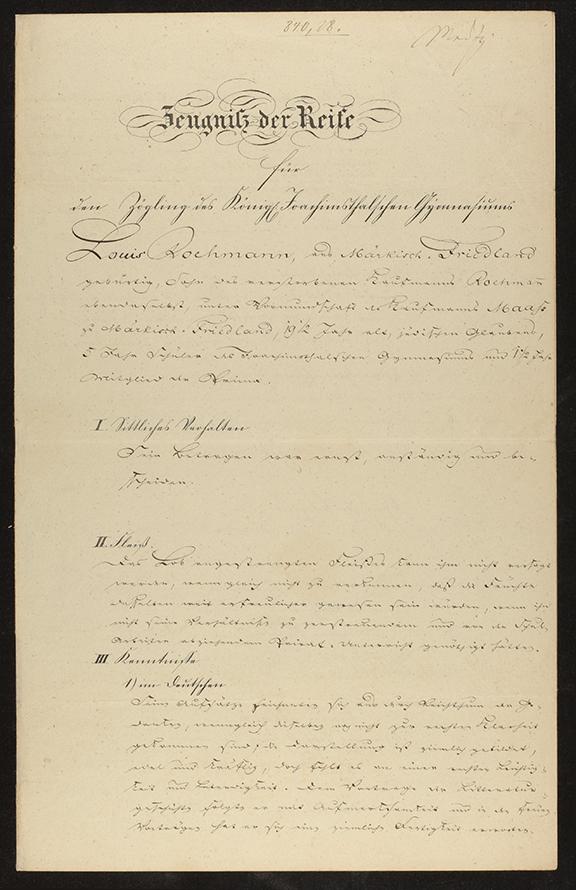 840, 28.
Zeugniß der Reife
für
den Zögling des Königl. Joachimsthalschen Gymnasiums
Louis Rochmann, aus Märkisch-Friedland
gebürtig, Sohn des verstorbenen Kaufmanns Rochmann
ebendaselbst, unter Vormundschaft des Kaufmanns Maaß
zu Märkisch-Friedland, 19½ Jahr alt, jüdischen Glaubens,
5 Jahr Schüler des Joachimsthalschen Gymnasiums und 1½ Jahr
Mitglied der Prima.
I. Sittliches Verhalten
Sein Betragen war ernst, anständig und be-
scheiden.
II. Fleiß.
Das Lob angestrengten Fleißes kann ihm nicht versagt
werden, wenngleich nicht zu verkennen, daß die Früchte
desselben weit erfreulicher gewesen sein würden, wenn ihn
nicht seine Verhältnisse zu zerstreuendem und von den Schul-
Arbeiten abziehendem Privat-Unterricht genöthigt hätten.
III Kenntnisse
1) im Deutschen
Seine Aufsätze zeichneten sich aus durch Reichthum an Ge-
danken, wenngleich dieselben nicht zur rechten Klarheit
gekommen sind; die Darstellung ist ziemlich gebildet,
edel und kräftig, doch fehlt es an einer rechten Leichtig-
keit und Lebendigkeit. Dem Vortrage der Litteratur-
geschichte folgte er mit Aufmerksamkeit und in den freien
Vorträgen hat er sich eine ziemliche Fertigkeit erworben.